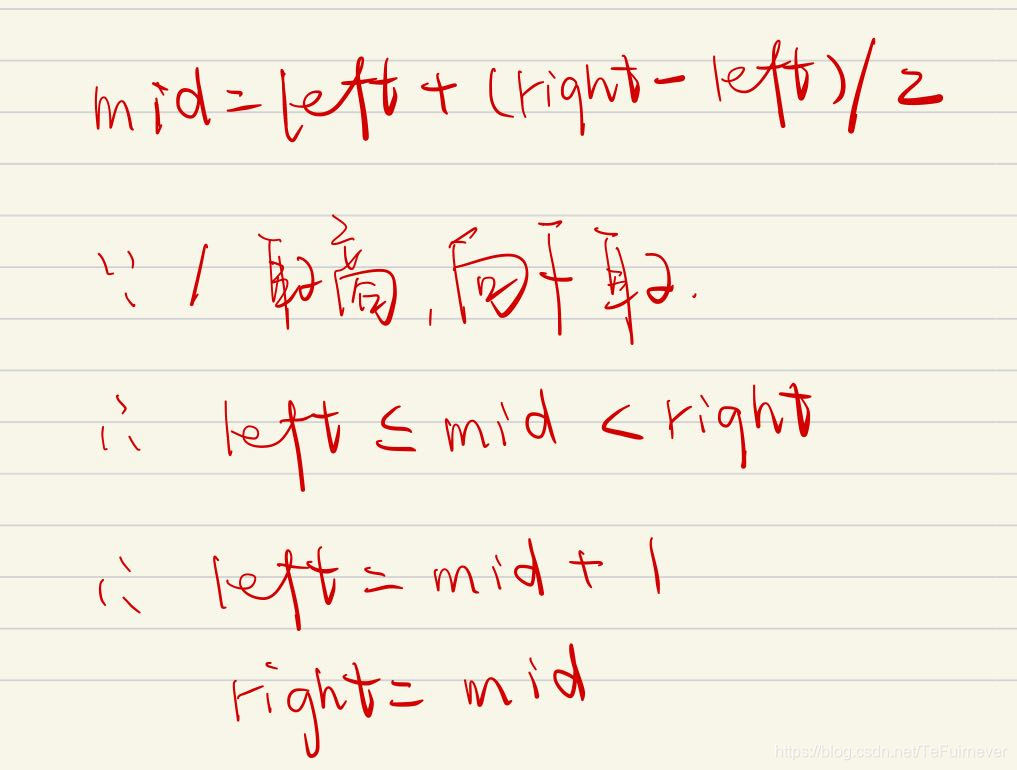 mid = left + (right - left) / 2
∵ / 取商,向下取.
∴ left ≤ mid < right
∴ left = mid + 1
right = mid
https://blog.csdn.net/TeFuirnever